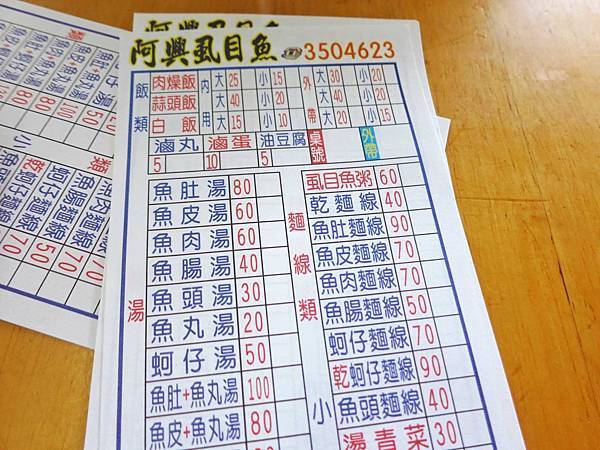 阿興虱目魚 ☎3504623
飯類
肉燥飯 內用 大 25 小 15 外帶 大 30 小 20
蒜頭飯 大 40 小 20 大 40 小 20
白飯 大 15 小 10 大 20 小 15
滷丸 5 滷蛋 10 油豆腐 5 桌號 外帶
湯
魚肚湯 80
魚皮湯 60
魚肉湯 60
魚腸湯 40
魚頭湯 30
魚丸湯 20
蚵仔湯 50
魚肚+魚丸湯 100
魚皮+魚丸湯 80
麵線類
虱目魚粥 60
乾麵線 40
魚肚麵線 90
魚皮麵線 70
魚肉麵線 70
魚腸麵線 50
蚵仔麵線 70
乾蚵仔麵線 90
魚頭麵線 40
小
燙青菜 30